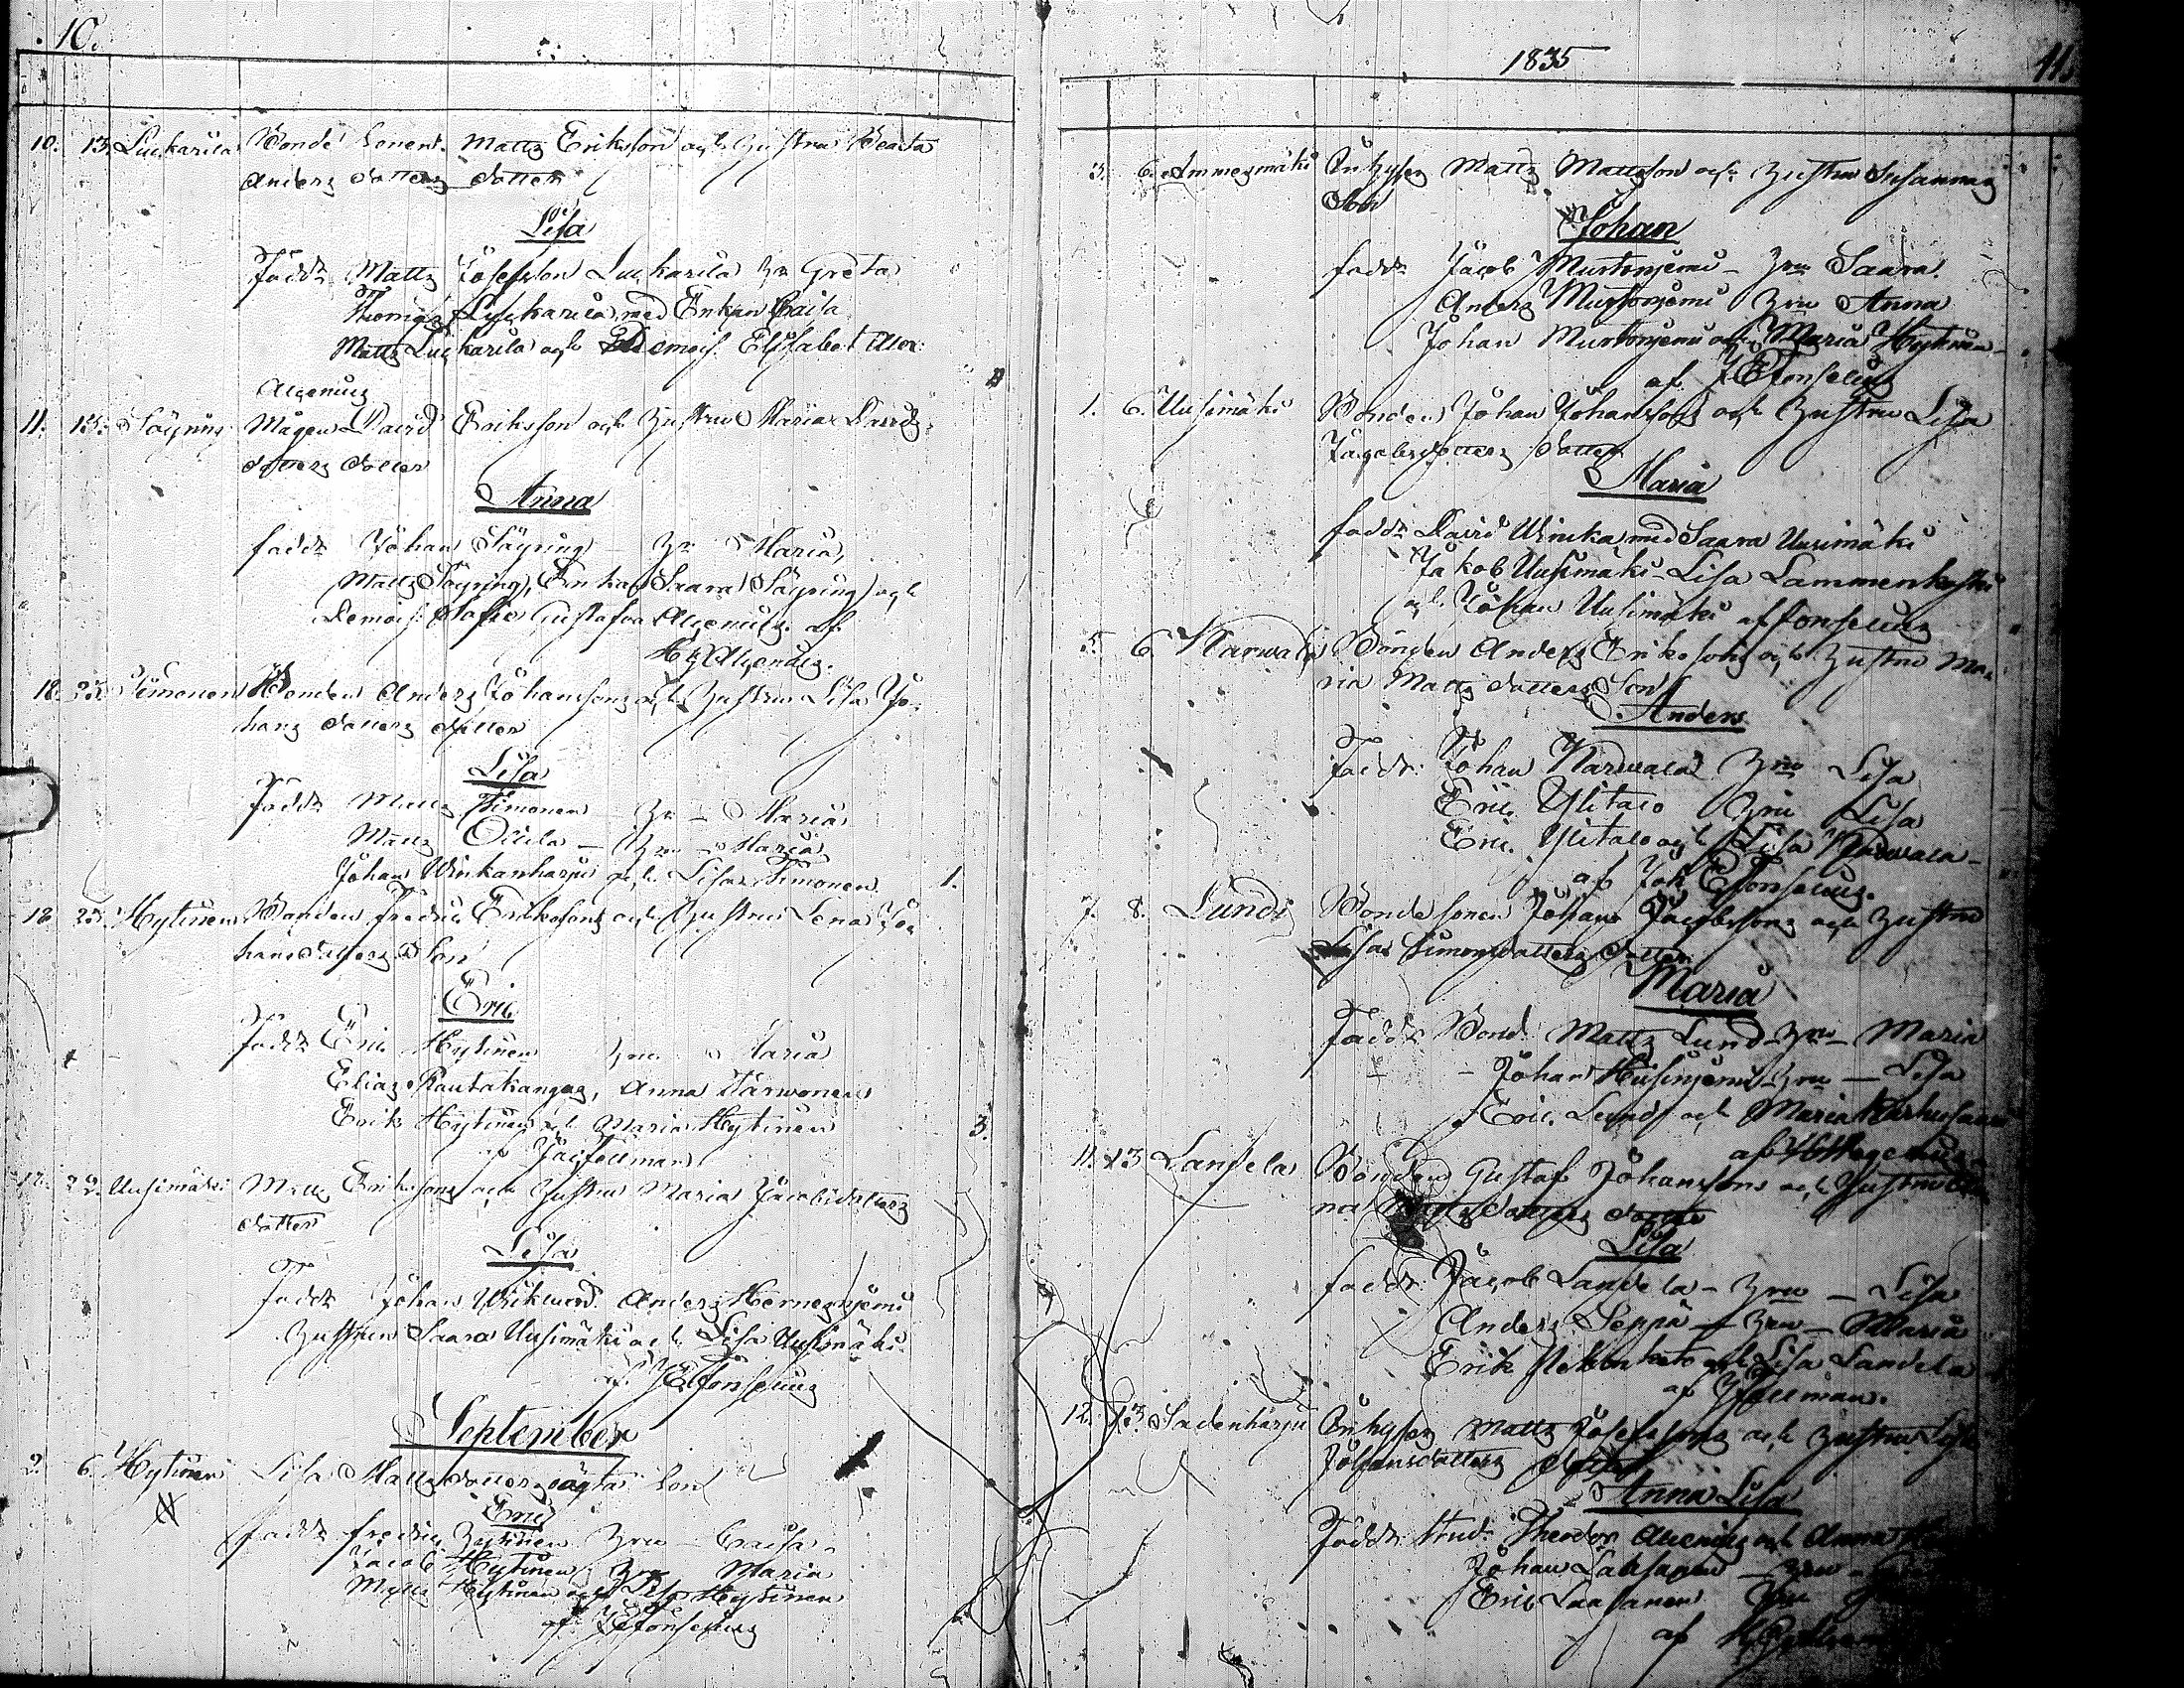 10.
10. 13. Luckarila Bonde Sonen Matts Eriksson och Hustrun Beata
Anders Dotters Dotter
Lisa
Faddr Matts Josefsson Luckarila Hu Greta
Thomas Luckarila med Enkan Caisa
Matts Luckarila och Demois. Elisabet
Alcenius
11. 13. Söyring Mågen David Eriksson och Hustrun Maria Davids
Dotters Dotter
Anna
fadd Johan Söyring Hu Maria,
Matts Söyring, Enkan Saara Söyring och
Demois. Sofie Gustafva Alcenius af
H. Alcenius.
18. 23. Timonen Bonden Anders Johanssons och Hustrun Lisa Jo-
hans Dotters Dotter
Lisa
Faddr Matts Timonen Hu - Maria
Matts Ollila - Hu - Maria
Johan Winkanharju och Lisa Timonen. 1.
18 23. Hytinen Bonden Fredric Erikssons och Hustrun Lena Jo
hans Dotters Son
Eric
Faddr Eric Hytinen Hru Maria
Elias Rautakangas, Anna Tarwonen
Erik Hytinen och Maria Hytinen 3.
af Jac Fellman
12. 22. Uusimäki Matts Erikssons och Hustrun Maria Jacobsdotters
Dotter
Lisa
Faddr Johan Anders Hernesniemi
Hustrun Saara Uusimäki och Lisa Uusimäki
af J Elfonselius
September
2. 6. Hytinen Lisa Matts Dotters oägta Son
Eric
fadd Fredric Hytinen Hru - Caisa
Jacob Hytinen Hru Maria
Matts Hytinen och Lisa Hytinen
af J Elfonselius
1835
11.
3. 6. Ammesmäki Inhyses Matts Mattsson och Hustrun Susannas
Son
Johan
fadd Jacob Murtoniemi - Hru Saara.
Anders Murtoniemi Hru Anna
Johan Murtoniemi och Maria Hytinen
af J Elfonselius
1. 6. Uusimäki Bonden Johan Johanssons och Hustrun Lisa
Jacobsdotters Dotter
Maria
fadd David med Saara Uusimäki
Jakob Uusimäki - Lisa Lammenkoski
och Johan Uusimäki af Elfonselius
5. 6. Karwala Bonden Anders Erikssons och Hustrun Ma-
ria Matts Dotters Son
Anders
Faddr. Johan Karwala Hru Lisa
Eric Ylitalo Hru Lisa
Eric Ylitalo och Lisa Karwala -
af Joh Elfonselius.
7. 8. Lund Bonde Sonen Johan Jacobssons och Hustrun
Lisa Simonsdotters Dotter
Maria
Fadd Bond. Matts Lund Hru - Maria
- Johan Heisniemi Hru - Lisa
Eric Lund och Maria
af H Alcenius
11. 13 Landela Bonden Gustaf Johanssons och Hustrun
na Matts Dotters Dotter
Lisa
fadd. Jacob Landela - Hru - Lisa
Anders Seppä - Hru - Maria
Erik och Lisa Landela
af J Fellman.
12. 13. Sadenharju Inhyses Matts Josefssons och Hustrun
Johansdotters Dotter
Anna Lisa
Faddr Stud. Theodor Alcenius och Anna
Johan Laasanen - Hru -
Eric Laasanen Hru
af H